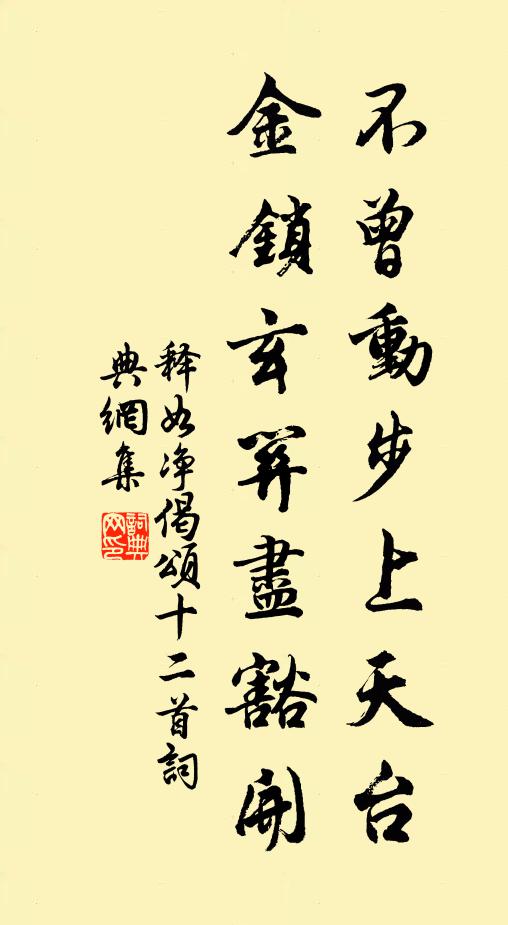 不曾動步上天台
金鎖玄關盡豁開
释如净偈頌十二首詞
典網集
詞典网印